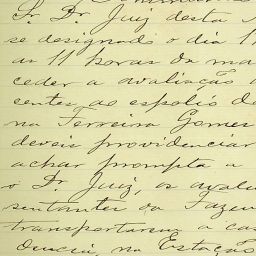 Sr. Dr. Juiz desta
se designado o dia 1
as 11 horas da ma
ceder a avaliação
centes ao espolio de
na Ferreira Gomes
deveis providenciar
achar prompta a
o Dr. Juiz, os avalia
sentantes da Fazen
transportarem a ca
dencia, na Estação